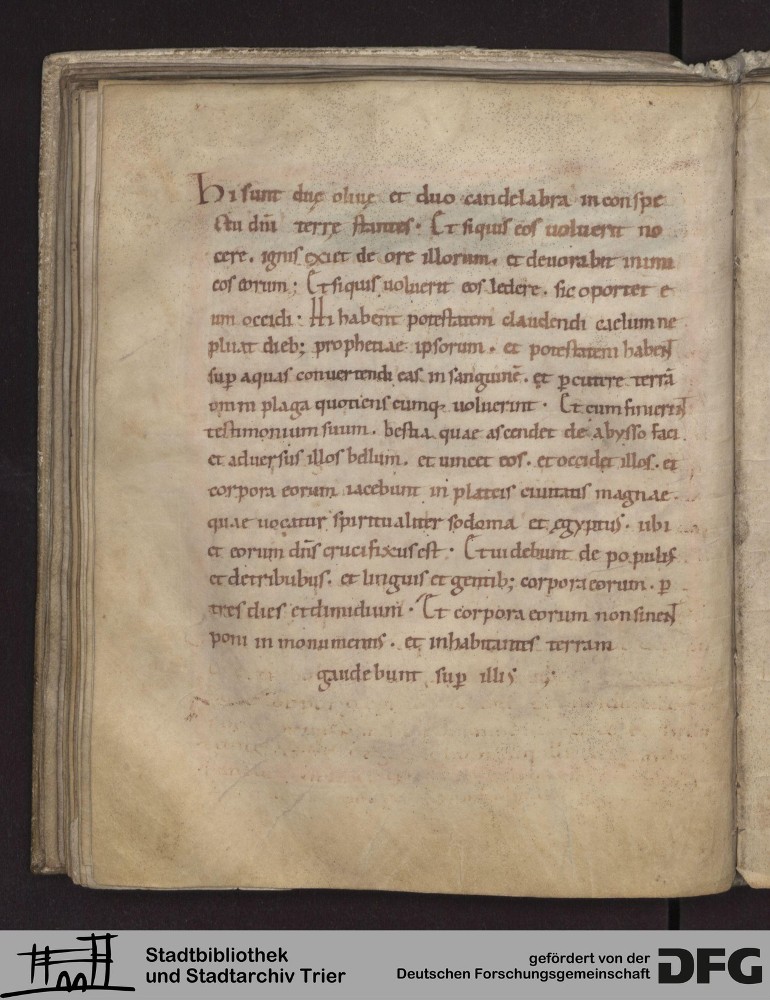 Hi sunt duę olivę et duo candelabra in conspe
ctu dn̄i terrę stantes. Et siquis eos voluerit no
cere. ignis exiet de ore illorum. et devorabit inimi
cos eorum; Et siquis voluerit eos ledere. sic oportet e
um occidi. Hi habent potestatem claudendi caelum ne
pluat dieb; prophetiae ipsorum. et potestatem habent
sup̄ aquas convertendi eas in sanguinē. et ꝑcutere terrā
omni plaga quotienscumq; voluerint. Et cum finierint
testimonium suum. bestia quae ascendet de abysso faci
et adversus illos bellum. et vincet eos. et occidet illos. et
corpora eorum iacebunt in plateis civitatis magnae.
quae vocatur spiritualiter sodoma et ęgyptus. ubi
et eorum dn̄s crucifixus est. Et videbunt de populis
et de tribubus. et linguis et gentib; corpora eorum. ꝑ
tres dies et dimidium. Et corpora eorum non sinent
poni in monumentis. et inhabitantes terram
gaudebunt sup̄ illis;
Stadtbibliothek
und Stadtarchiv Trier
gefördert von der
Deutschen Forschungsgemeinschaft
DFG